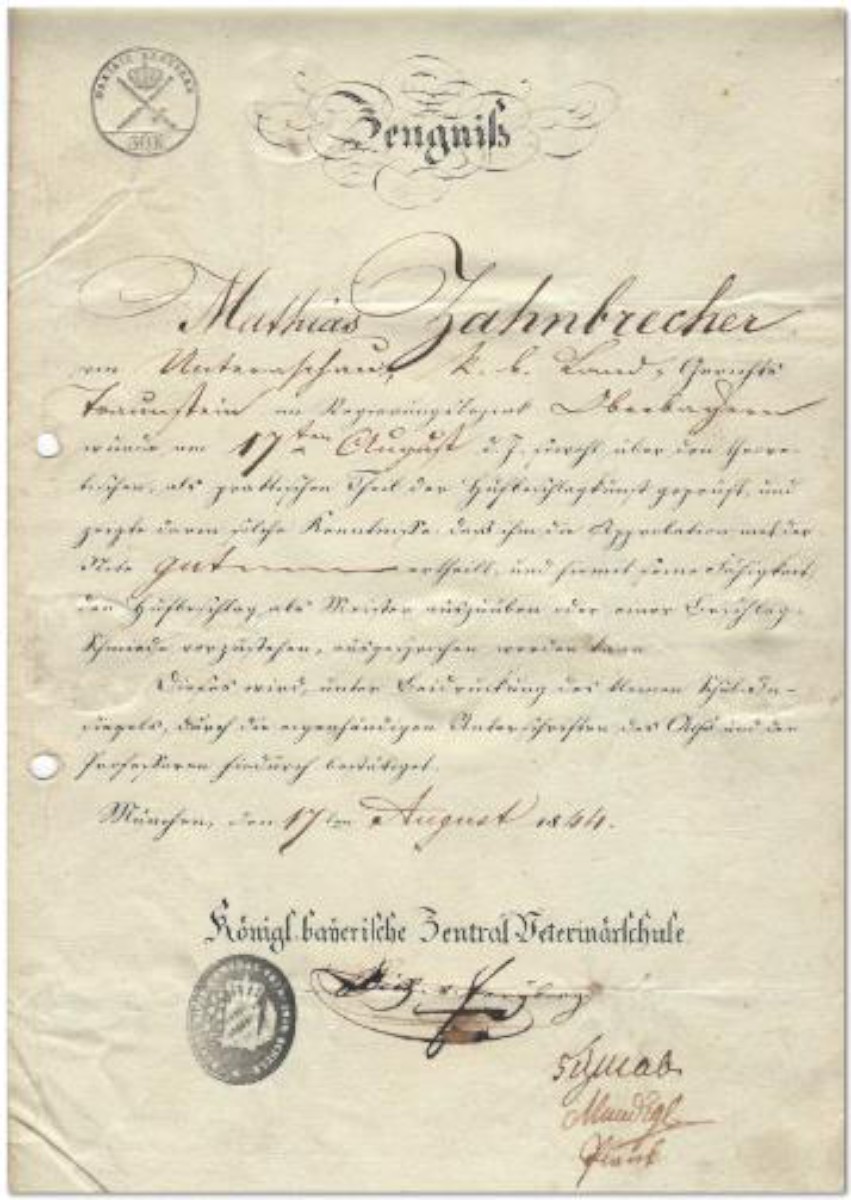 30 K
Zeugniß
Mathias Zahnbrecher
von Unteraschau, k. b. Land-Gerichts
Traunstein im Regierungsbezirk Oberbayern
wurde am 17ten August d. J. sowohl über den theore-
tischen, als praktischen Theil der Hufbeschlagkunst geprüft, und
zeigte darin solche Kenntnisse, daß ihm die Approbation mit der
Note gut ertheilt, und hiemit seine Fähigkeit,
den Hufbeschlag als Meister auszuüben oder einer Beschlag-
Schmiede vorzustehen, ausgesprochen werden kann.
Dieses wird, unter Beidrückung des kleinen Schul-In-
siegels, durch die eigenhändigen Unterschriften des und der
Professoren hiedurch bestätiget.
München, den 17ten August 1844.
Königl. bayerische Zentral Veterinärschule
Schwab
Plank